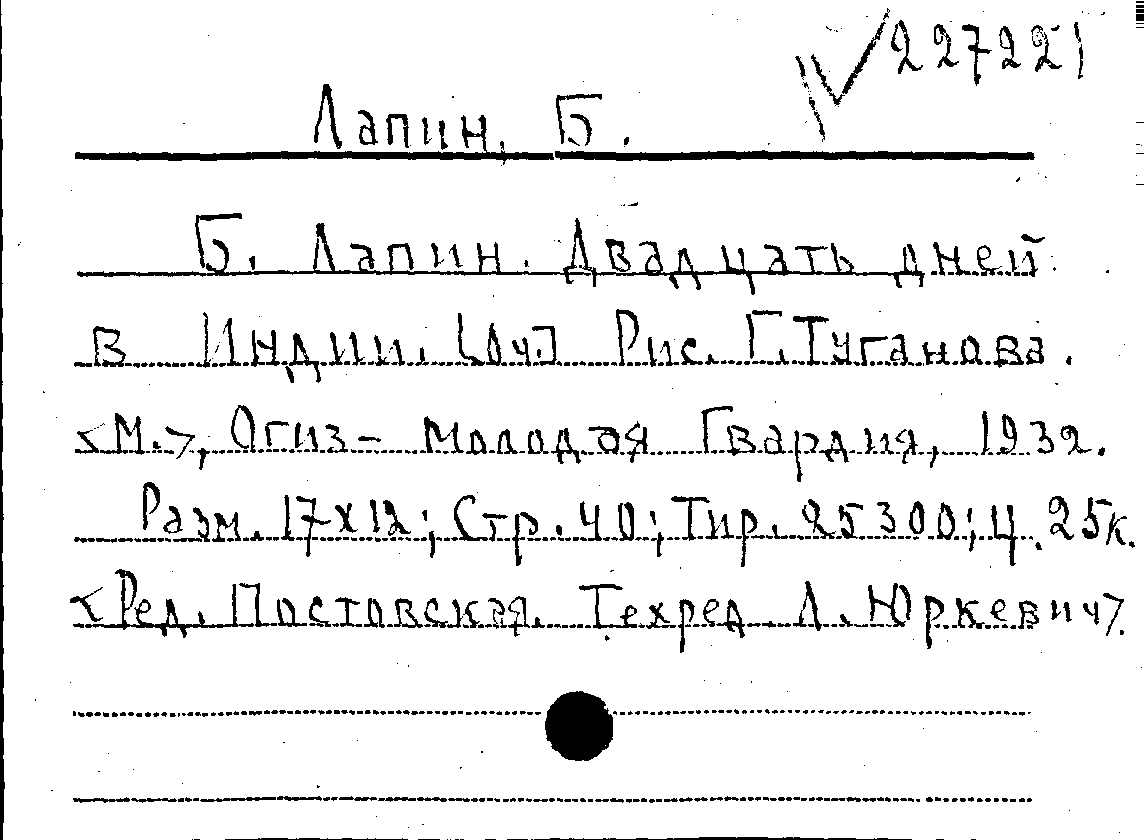 227221
Лапин, Б.
Б. Лапин. Двадцать дней
в Индии. [Оч.] Рис. Г. Туганова.
<М.>, Огиз – Молодая Гвардия, 1932.
Разм. 17х12; Стр. 40; Тир. 25300; Ц. 25к.
<Ред. Постовская. Техред Л. Юркевич>.